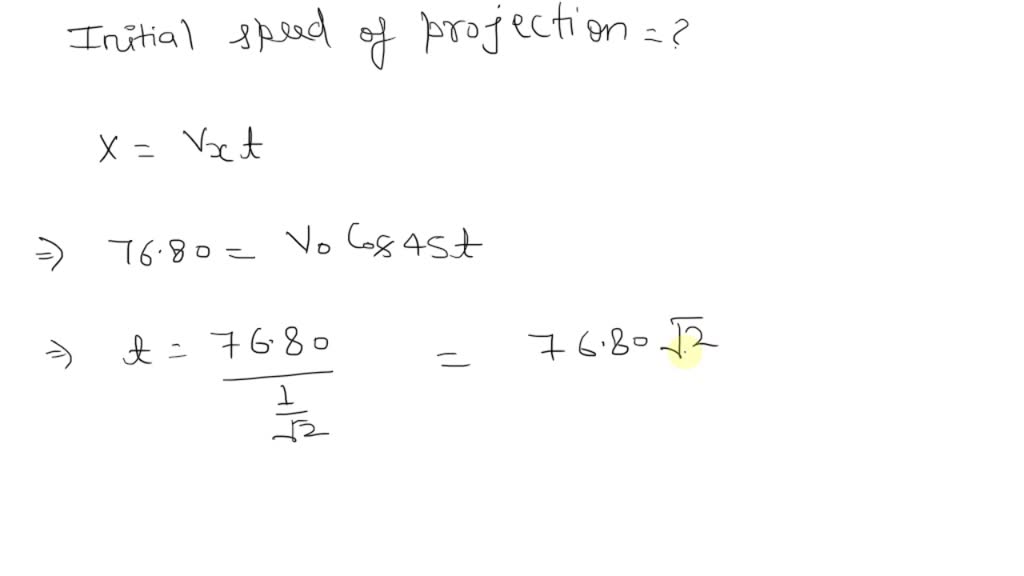 Initial speed of projection = ?
x = Vx t
⇒ 76.80 = V0 Cos 45 t
⇒ t = 76.80 / (1/√2) = 76.80 √2